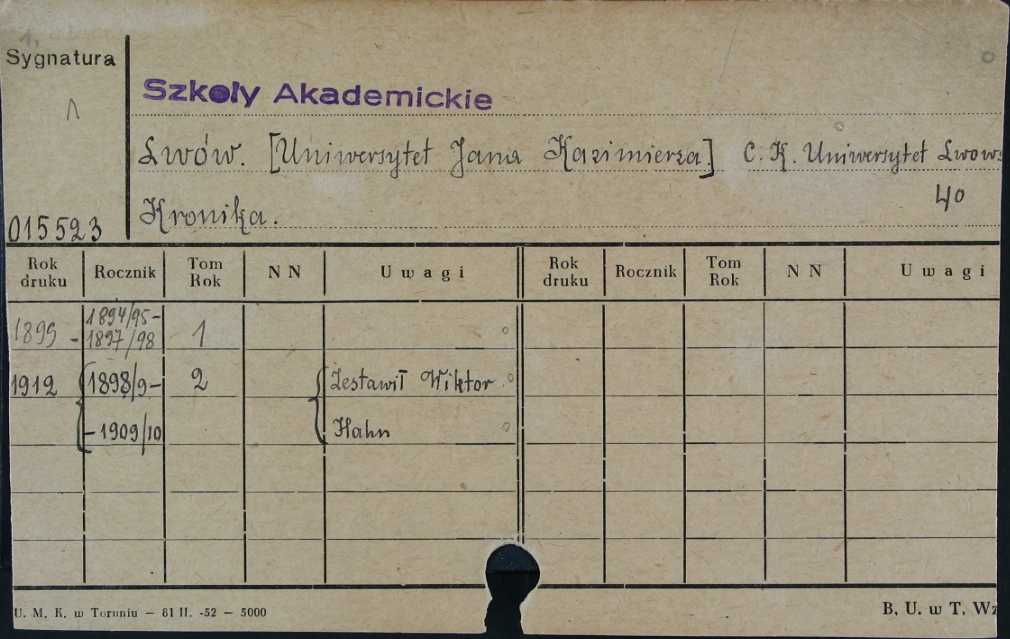 Sygnatura
Szkoły Akademickie
Lwów. [Uniwersytet Jana Kazimierza] C. K. Uniwersytet Lwows
40
Kronika.
015523
Rok druku Rocznik Tom Rok N N Uwagi Rok druku Rocznik Tom Rok N N Uwagi
1899 - 1894/95-
1897/98 1
1912 1898/9- 2 Zestawił Wiktor
- 1909/10 Hahn
U. M. K. w Toruniu — 81 II. -52 — 5000
B. U. w T. Wz